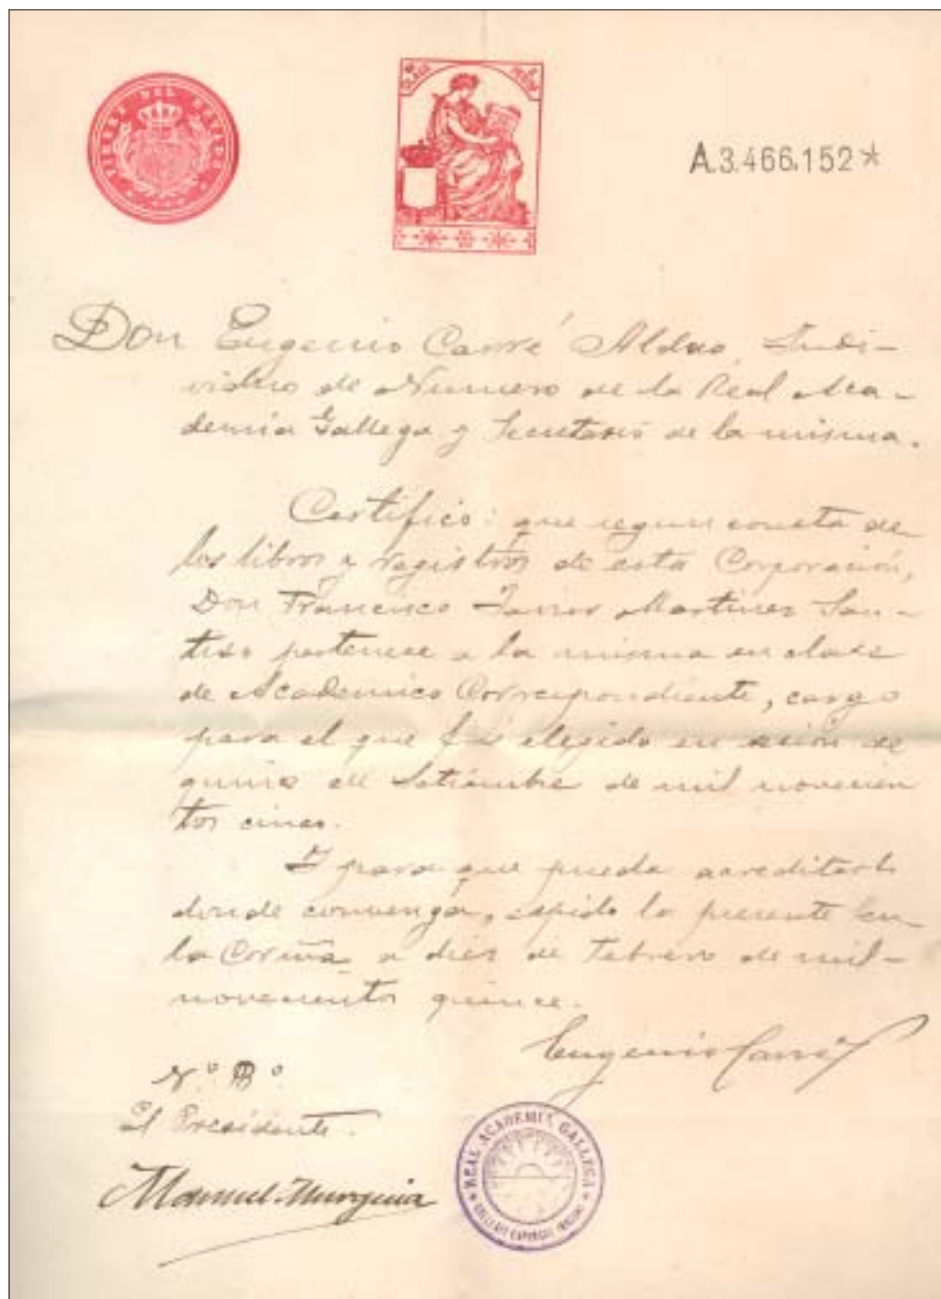 TIMBRE DEL ESTADO
A.3.466,152*
Don Eugenio Carré Aldao, Indi-
viduo de Número de la Real Aca-
demia Gallega y Secretario de la misma.
Certifico: que segun consta de
los libros y registros de esta Corporación,
Don Francisco Javier Martinez San-
tiso pertenece a la misma en clase
de Academico Correspondiente, cargo
para el que fué elegido en sesión de
quince de Setiembre de mil novecien
tos cinco.
Y para que pueda acreditarlo
donde convenga, espido la presente en
la Coruña a diez de Febrero de mil-
novecientos quince.
Eugenio Carré
Vº Bº
El Presidente.
Manuel Murguia
REAL ACADEMIA GALLEGA